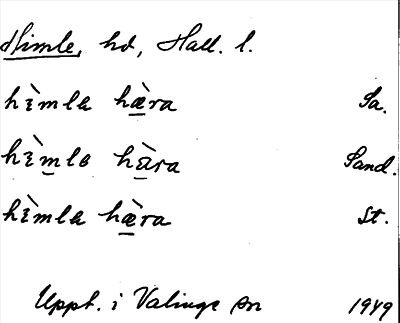 Himle, hd, Hall. l.
hìmla hæ̀ra Sa.
hìmla hæ̀ra Sand.
hìmla hæ̀ra St.
Uppt. i Valinge sn 1949